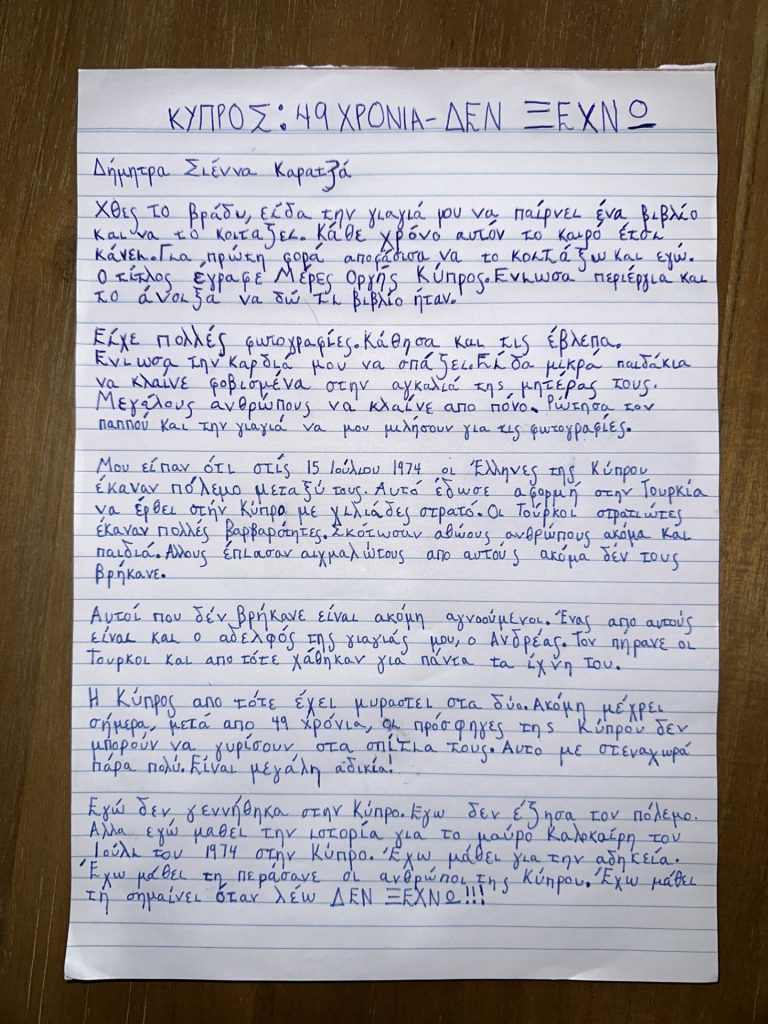 ΚΥΠΡΟΣ: 49 ΧΡΟΝΙΑ-ΔΕΝ ΞΕΧΝΩ
Δήμητρα Σιέννα Καρατζά
Χθες το βράδυ, είδα την γιαγιά μου να παίρνει ένα βιβλίο
και να το κοιτάξει. Κάθε χρόνο αυτόν το καιρό έτσι
κάνει. Για πρώτη φορά αποφάσισα να το κοιτάξω και εγώ.
Ο τίτλος έγραφε Μέρες Οργής Κύπρος. Ενιωσα περιέργια και
το άνοιξά να δώ τι βιβλίο ήταν.
Είχε πολλές φωτογραφίες. Κάθησα και τις έβλεπα.
Ενιωσα την καρδιά μου να σπάζει. Είδα μικρά παιδάκια
να κλαίνε φοβισμένα στην αγκαλιά της μητέρας τους.
Μεγάλους ανθρώπους να κλαίνε απο πόνο. Ρώτησα τον
παππού και την γιαγιά να μου μιλήσουν για τις φωτογραφίες.
Μου είπαν ότι στίς 15 Ιούλιου 1974 οι Έλληνες της Κύπρου
έκαναν πόλεμο μεταξύ τους. Αυτό έδωσε αφορμή στην Τουρκία
να έρθει στήν Κύπρο με χιλιάδες στρατό. Οι Τούρκοι στρατιώτες
έκαναν πολλές βαρβαρότητες. Σκότωσαν αθώους ανθρώπους ακόμα και
παιδιά. Αλλους έπιασαν αιχμαλώτους απο αυτούς ακόμα δέν τους
βρήκανε.
Αυτοί που δέν βρήκανε είναι ακόμη αγνοούμενοι. Ένας απο αυτούς
είναι και ο αδελφός της γιαγιάς μου, ο Ανδρέας. Τον πήρανε οι
Τουρκοι και απο τότε χάθηκαν για πάντα τα ίχνη του.
Η Κύπρος απο τότε έχει μυραστεί στα δύο. Ακόμη μέχρει
σήμερα, μετά απο 49 χρόνια, οι πρόσφηγες της Κύπρου δεν
μπορούν να γυρίσουν στα σπίτια τους. Αυτο με στεναχωρά
πάρα πολύ. Είναι μεγάλη αδικία!
Εγώ δεν γεννήθηκα στην Κύπρο. Εγω δεν έζησα τον πόλεμο.
Αλλα εγώ μαθει την ιστορία για το μαύρο Καλοκαίρη του
Ιούλι του 1974 στην Κύπρο. Έχω μάθει για την αδηκεία.
Έχω μάθει τη περάσανε οι ανθρωποι της Κύπρου. Έχω μάθει
τή σημαίνει όταν λέω ΔΕΝ ΞΕΧΝΩ!!!